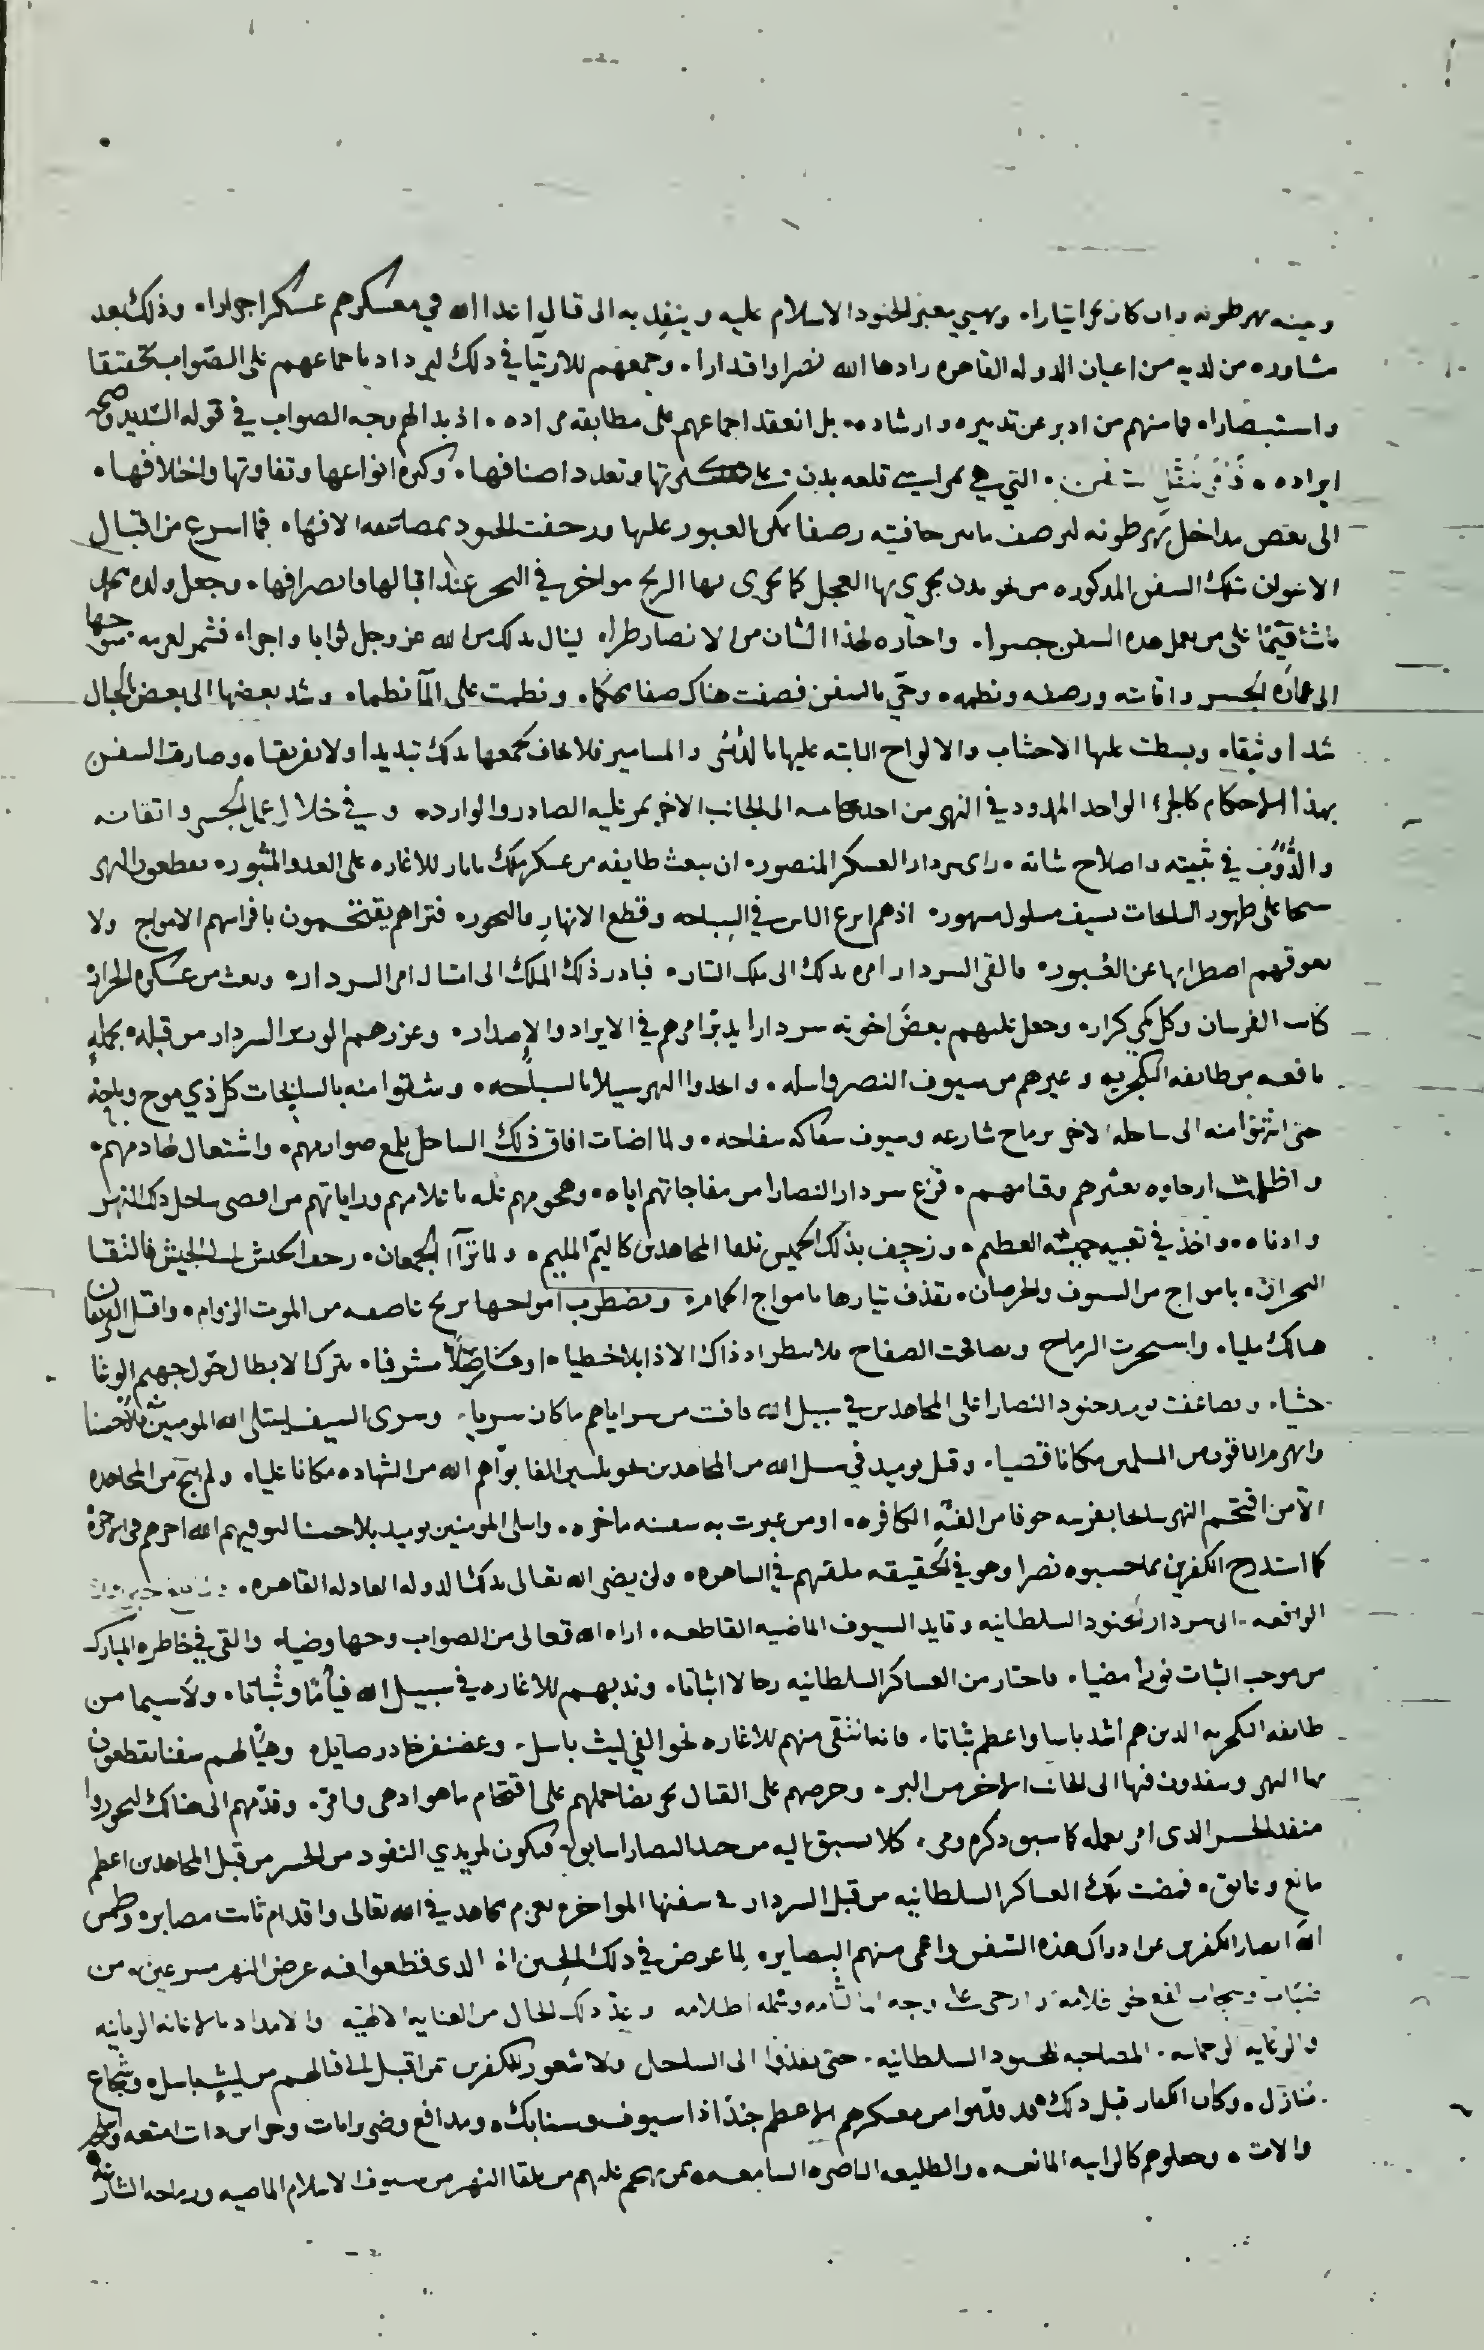 وبينه نهر طونه وان كان بحرا تيارا. ويهيي معبر الجنود الاسلام عليه وينفذ به الى قتال اعدا الله في معسكرهم عسكرا جرارا. وذلك بعد
مشاوره من لديه من اعيان الدوله القاهره زادها الله نصرا واقتدارا. وجمعهم للارتيا في ذلك ليزداد باجماعهم على الصواب تحقيقا
واستبصارا. فما منهم من ادبر عن تدبيره وارشاده. بل انعقد اجماعهم على مطابقه مراده. اذ بدا لهم وجه الصواب في قوله السديد وصحه
ايراده. التي هي بمراسي قلعه بدن على كثرتها وتعدد اصنافها. وكثره انواعها وتفاوتها واختلافها.
الى بعض مداخل نهر طونه لترصف ما بين حافتيه رصفا يمكن العبور عليها وزحفت الجنود بمصاففه الافيها. فما اسرع من اقبال
الاعوان بتلك السفن المذكوره من نحو بدن يجري بها العجل كما تجري بها الريح مواخر في البحر عند اقبالها وانصرافها. وجعل ولده محمد
باشا قيمًا على من يعمل هذه السفن جسرا. واختاره لهذا الشان من الانصار طرا. لينال بذلك من الله عز وجل ثوابا واجرا. فشمر لعزمه متوجها
الى عماره الجسر واقامته ورصفه ونظمه. وجي بالسفن فصفت هناك صفا محكما. ونظمت على المآ نظما. وشد بعضها الى بعض بالحبال
شدا وثيقا. وبسطت عليها الاخشاب والالواح الثابته عليها بالدسر والمسامير فلا يخاف لجمعها بذلك تبديدا ولا تفريقا. وصارت السفن
بهذا الاحكام كالجزء الواحد الممدود في النهر من احد جانبيه الى الجانب الاخر يمر عليه الصادر والوارد. وفي خلال اعمال الجسر واتقانه
والدؤوب في تثبيته واصلاح شانه. راى سردار العسكر المنصور. ان يبعث طايفه من عسكر ملك تاتار للاغاره على العدو المثبور. يقطعون النهر
سبحا على ظهور السابحات بسيف مسلول مشهور. اذ هم اسرع الناس في السباحه وقطع الانهار والبحور. فتراهم يقتحمون بافراسهم الامواج ولا
يعوقهم اضطرابها عن العبور. فالقى السردار امره بذلك الى ملك التتار. فبادر ذلك الملك الى امتثال امر السردار. وبعث من عسكره الجرار
كتايب الفرسان وكل كمي كرار. وجعل عليهم بعض اخوته سردارا يدبر امرهم في الايراد والاصدار. وعززهم الوزير السردار من قبله بجمله
نافعه من طايفه الينكجريه وغيرهم من سيوف النصر واسله. واتخذوا النهر سبيلا بالسباحه. وشقوا منه بالسابحات كل ذي موج
حتى انبثوا منه الى ساحله الاخر برماح شارعه وسيوف سفاكه سفاحه. ولما اضات افاق ذلك الساحل بلمع صوارمهم. واشتعال لهاذمهم.
واظلمت ارجاوه بعثيرهم وقتامهم. فزع سردار النصارا من مفاجاتهم اياه. وهجومهم عليه باعلامهم وراياتهم من اقصى ساحل ذلك النهر
وادناه. واخذ في تعبيه جيشه العظيم. وزحف بذلك الخميس تلقا المجاهدين كاليم المليم. ولما ترآا الجمعان. زحف الجيش الى الجيش فالتقا
البحران. بامواج من السيوف والخرصان. تقذف تيارها بامواج الحمام. وتضطرب امواجها بريح عاصفه من الموت الزوام. واقتتل الفريقان
هنالك مليا. واستحرت الرماح وتصافحت الصفاح فلا اسطر اذ ذاك الا ذابلا خطيا. او مناضلا مشرفيا. بترك الابطال حول جهنم الوغا
جثيا. وتضاعفت يوميذ جنود النصارا على المجاهدين في سبيل الله فافنت من سراياهم ما كان سريا. وسرى السيف ليبتلى الله المومنين منه بلاءً حسنا
وانهزم الباقون من المسلمين مكانا قصيا. وقتل يوميذ في سبيل الله من المجاهدين نحو ثلثين الفا بواهم الله من الشهاده مكانا عليا. ولم ينج من المجاهده
الا من اقتحم النهر سابحا بفرسه خوفا من الفئه الكافره. او من عبرت به سفينه ماخره. وابتلى المومنين يوميذ بلاء حسنا ليوفيهم الله اجرهم في الاخره
كما استدرج الكفرين بما حسبوه نصرا وهو في الحقيقه ملقيهم في الساهره. ولن يرضى الله تعالى بذلك للدوله العادله القاهره.
الواقعه. الى سردار الجنود السلطانيه وقايد السيوف الماضيه القاطعه. اراه الله تعالى من الصواب وجها وضيا. والقى في خاطره المبارك
من موجب الثبات نورا مضيا. فاختار من العساكر السلطانيه رجالا اثباتا. وندبهم للاغاره في سبيل الله فيأمًا وثباتا. ولا سيما من
طايفه الينكجريه الذين هم اشد باسا واعظم ثباتا. فانه انتقى منهم للاغاره نحو الفي ليث باسل. وغضنفر خادر صايل. وهيا لهم سفنا يقطعون
بها النهر وينفذون فيها الى الجانب الاخر من البر. وحرضهم على القتال تحريضا حملهم على اقتحام ما هو ادهى وامر. وقدمهم الى هنالك ليحوزوا
منفذ الجسر الذي امر بعمله كما سبق ذكره ومر. كلا يسبق اليه من جند النصارا سابق. فيكون لمريدي النفوذ من الجسر من قبل المجاهدين اعظم
مانع وعايق. فمضت تلك العساكر السلطانيه من قبل السردار في سفنها المواخر. بعزم مجاهد في الله تعالى واقدام ثابت مصابر. وطمس
الله ابصار الكفرين عن ادراك هذه السفن واعمى منهم البصاير. لما عرض في ذلك الحين الذي قطعوا فيه عرض النهر مسرعين. من
ضباب وسحاب وجه الما لثامه وشمله اظلامه وعند ذلك الحال من العنايه الالهيه والامداد بالاعانه الربانيه
والرعايه الرحمانيه. المصاحبه للجنود السلطانيه. حتى نفذوا الى الساحل ولا شعور للكفرين بمن اقبل الى قتالهم من ليث باسل. وشجاع
منازل. وكان الكفار قبل ذلك قد قدموا من معسكرهم الاعظم جندا ذا سيوف وسنابك. ومدافع وضربزانات وحراس ذات امتعه
والات. وجعلوهم كالرابيه المانعه. والطليعه الناصره السامعه. بمن يهجم عليهم من تلقا النهر من سيوف الاسلام الماضيه ورماحه